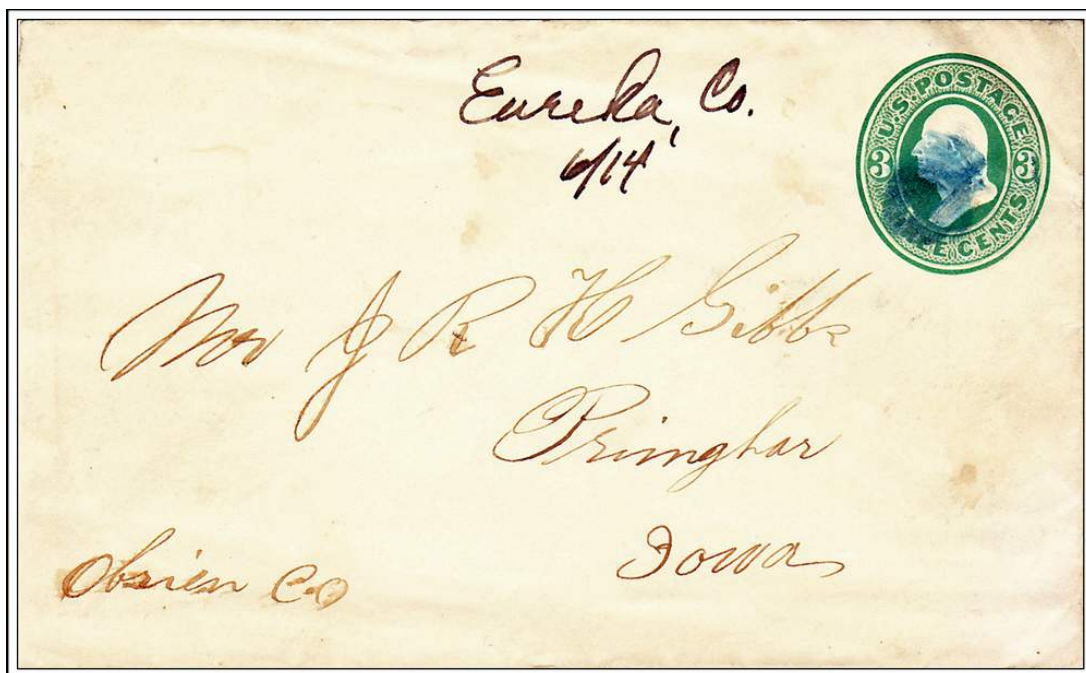 Eureka, Co.
6/14
U.S. POSTAGE
3 3
THREE CENTS
Mr J R H Gibbs
Primghar
Iowa
Obrien Co